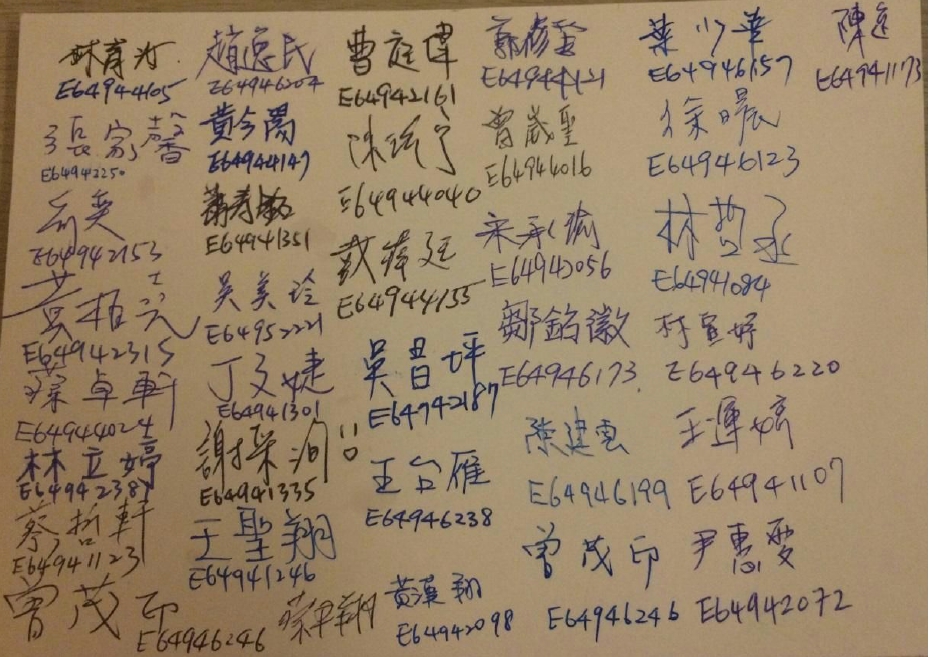 林育
E64944105
張家馨
E64942250
俞英
E64942153
黃柏元
E64942315
蔡卓軒
E64944024
林立婷
E64942387
蔡哲軒
E64941123
曾茂印
E64946246
趙惠民
E64946204
黃今陽
E64944147
蕭壽
E64941351
吳美玲
E64952221
丁文婕
E64941301
謝采洵
E64941335
王聖翔
E64941246
翔
曹庭偉
E64942161
陳
E64944040
戴偉廷
E64944155
吳昌坪
E64742187
王台雁
E64946238
黃漢翔
E64942098
E64944121
曾崴聖
E64944016
宋承瑜
E64942056
鄒銘徽
E64946173
陳建雲
E64946199
曾茂印
E64946246
葉少華
E64946157
徐晨
E64946123
林哲丞
E64941084
林宣妤
E64946220
王運婷
E64941107
尹惠雯
E64942072
陳
E64941173